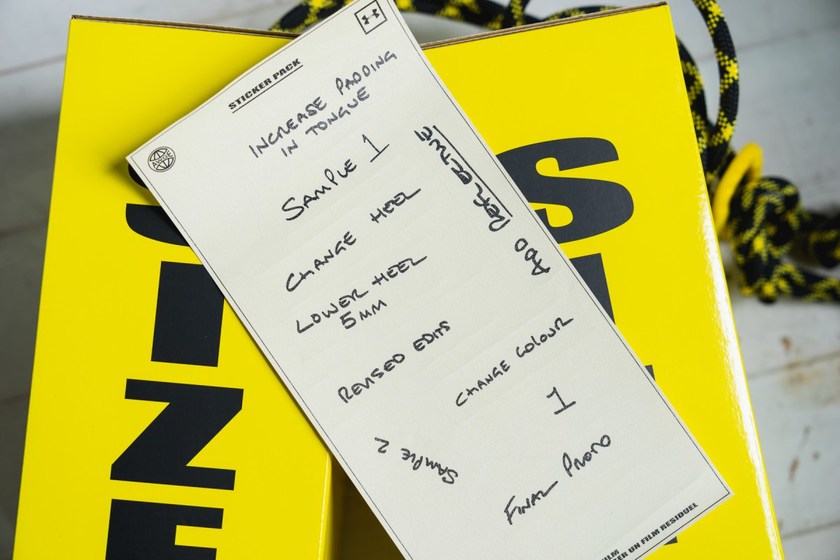 STICKER PACK
INCREASE PADDING
IN TONGUE
SAMPLE 1
ADD REFLECTIVE
CHANGE HEEL
LOWER HEEL
5MM
REVISED EDITS
CHANGE COLOUR
1
SAMPLE 2
FINAL PROTO
FILM
UN FILM RÉSIDUEL
SIZE
S